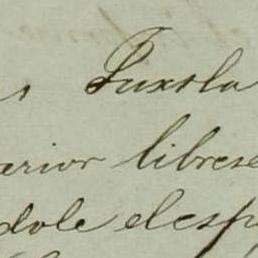 s Tuxtla
erior librese
dole el esp